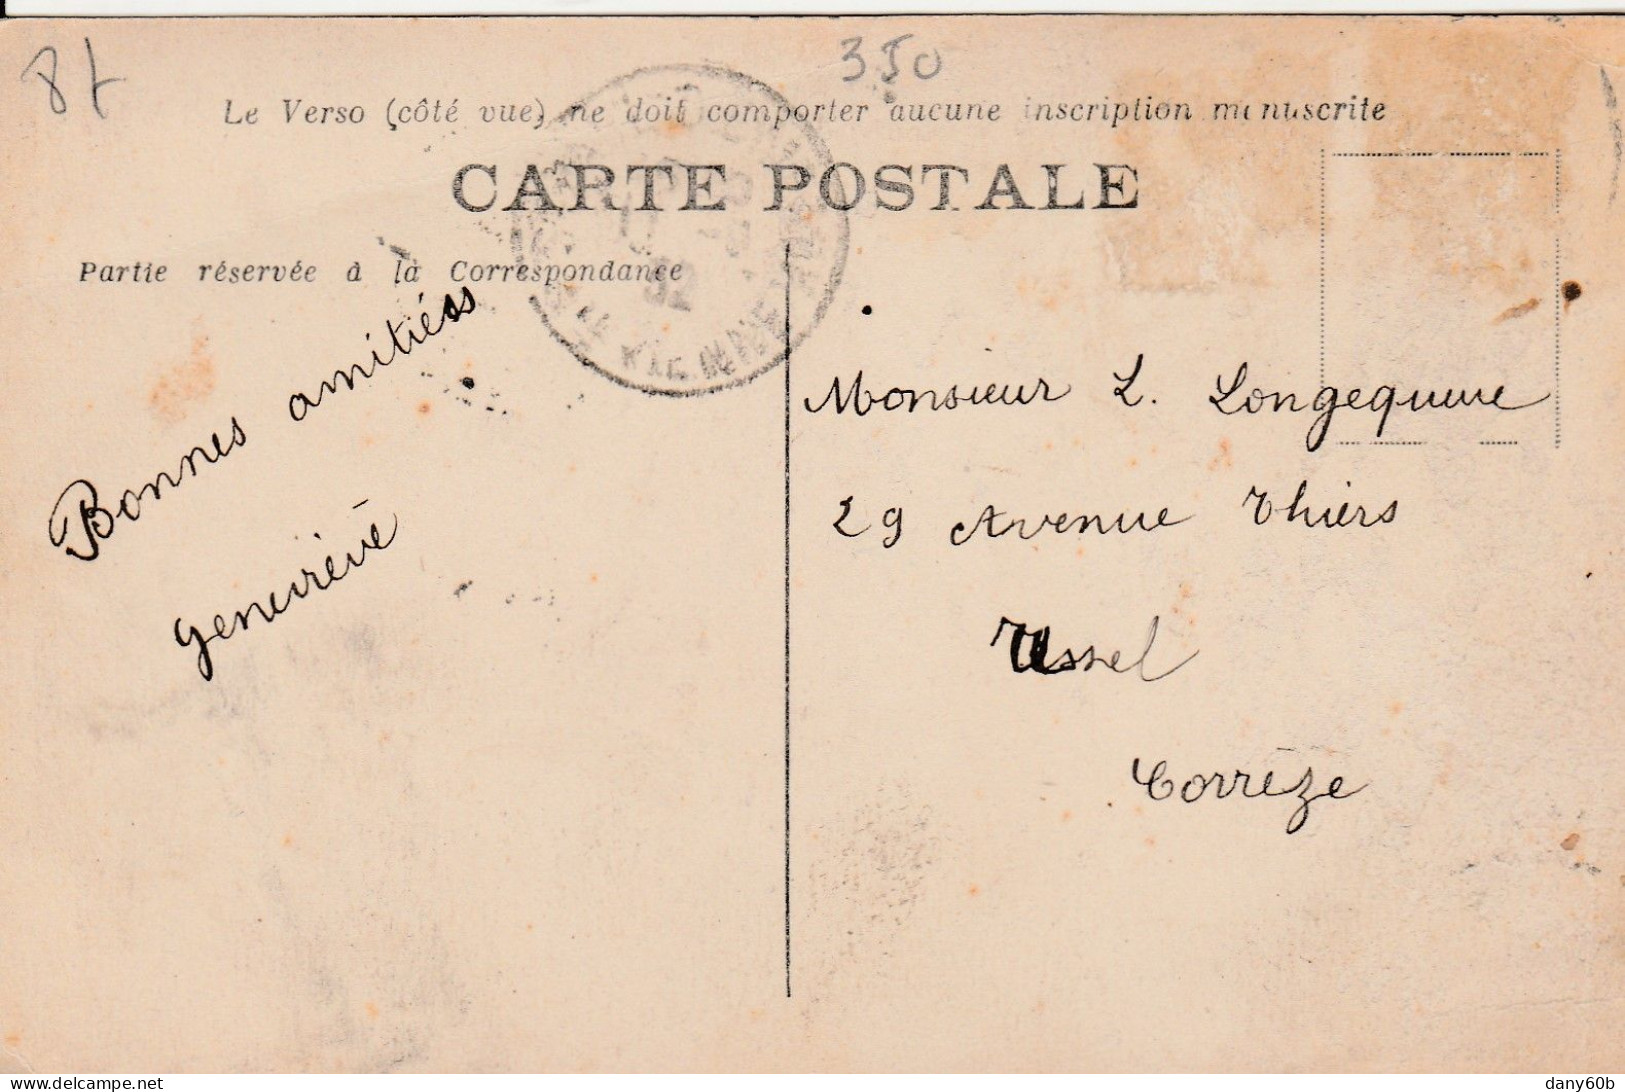 87
350
Le Verso (côté vue) ne doit comporter aucune inscription manuscrite
CARTE POSTALE
Partie réservée à la Correspondance
Bonnes amitiés
Geneviève
Monsieur L. Longequeue
29 Avenue Thiers
Ussel
Corrèze
delcampe.net
dany60b